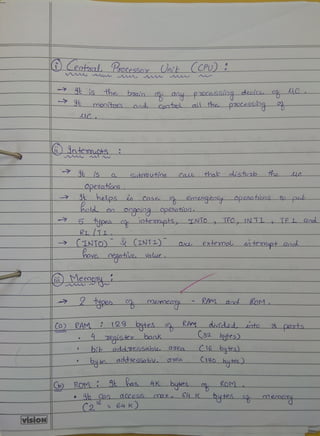 (i) Central Processor Unit (CPU) :
→ It is the brain of any processing device of μC.
→ It monitors and control all the processing of
μC.
(ii) Interrupts :
→ It is a subroutine call that disturb the μC
operations.
→ It helps in case of emergency operations to put
hold on ongoing operation.
→ 5 types of interrupts, INT0, TF0, INT1, TF1 and
R1/T1.
→ (INT0)⁻ & (INT1)⁻ are external interrupt and
have negative value.
(iii) Memory :
→ 2 types of memory - RAM and ROM.
(a) RAM : 128 bytes of RAM divided into 3 parts
• 4 register bank (32 bytes)
• bit addressable area (16 bytes)
• byte addressable area (180 bytes)
(b) ROM : It has 4K bytes of ROM.
• It can access max. 64K bytes of memory
(2¹⁶ = 64K)
vision